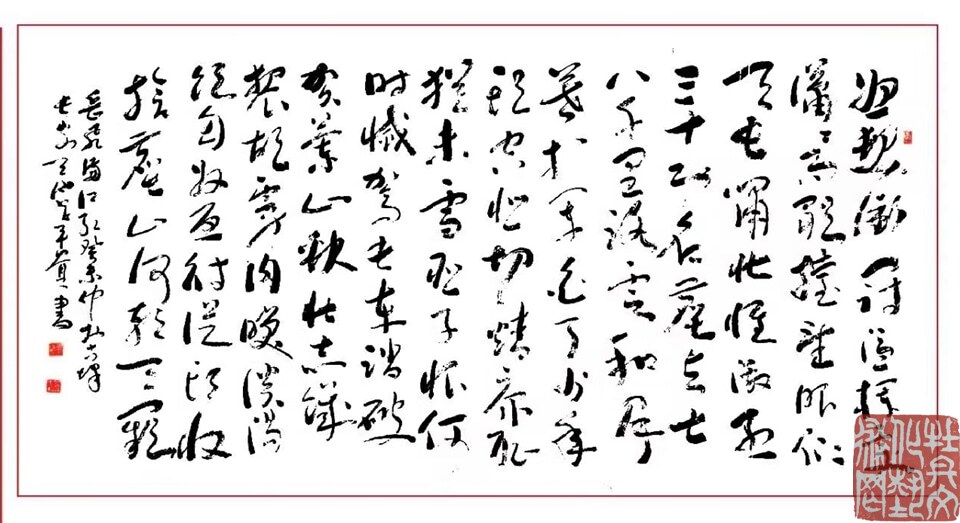 怒髮衝冠憑欄處
瀟瀟雨歇擡望眼仰
天長嘯壯懷激烈
三十功名塵與土
八千里路雲和月
莫等閒白了少年
頭空悲切靖康恥
猶未雪臣子恨何
時滅駕長車踏破
賀蘭山缺壯志飢
餐胡虜肉笑談渴
飲匈奴血待從頭收
拾舊山河朝天闕
岳飛滿江紅癸未仲秋
書
牡丹文